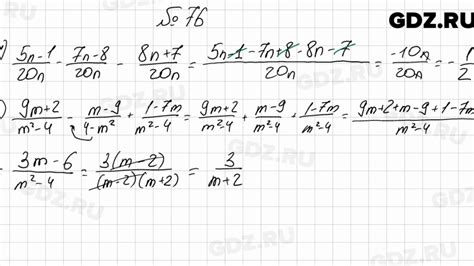 № 76
GDZ.RU
) (5n-1)/20n - (7n-8)/20n - (8n+7)/20n = (5n-1-7n+8-8n-7)/20n = -10n/20n = -1/2
) (9m+2)/(m²-4) - (m-9)/(4-m²) + (1-7m)/(m²-4) = (9m+2)/(m²-4) + (m-9)/(m²-4) + (1-7m)/(m²-4) = (9m+2+m-9+1-7m)/(m²-4)
= (3m-6)/(m²-4) = 3(m-2)/((m-2)(m+2)) = 3/(m+2)